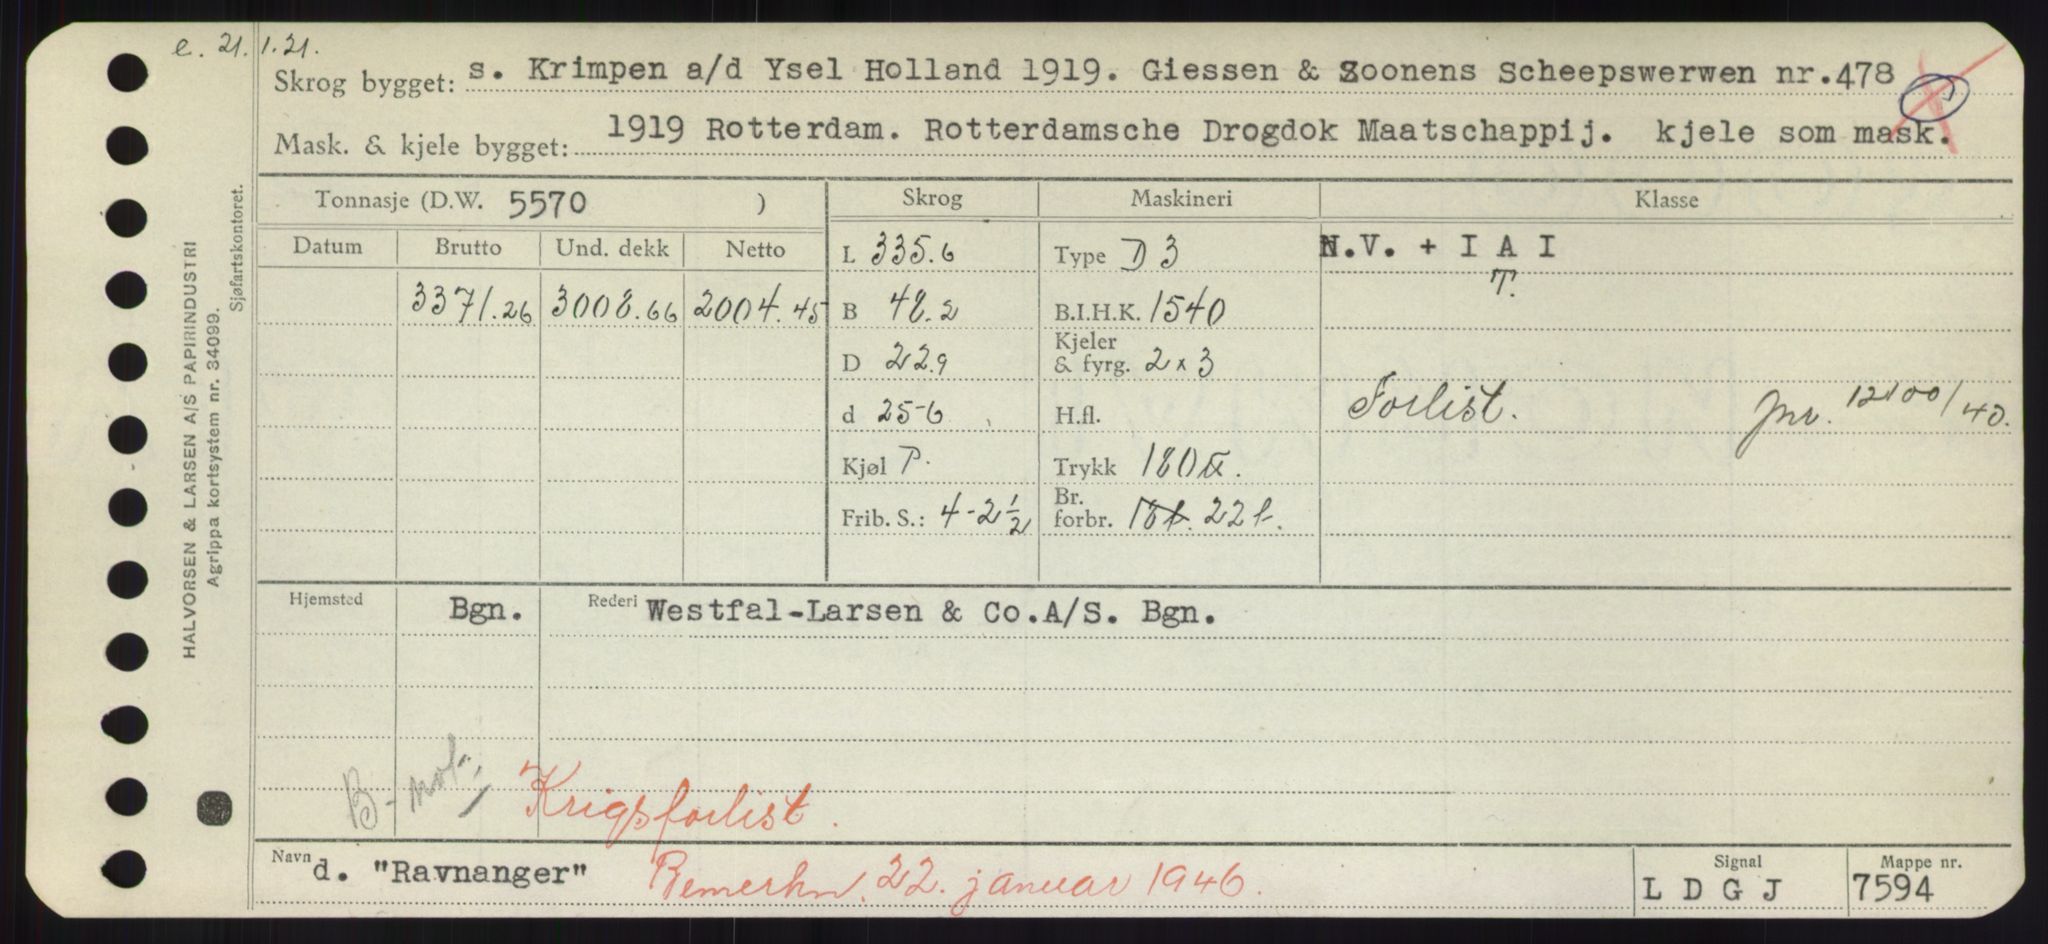 e. 21.1.21.
Skrog bygget: s. Krimpen a/d Ysel Holland 1919. Giessen & Zoonens Scheepswerwen nr.478
Mask. & kjele bygget: 1919 Rotterdam. Rotterdamsche Drogdok Maatschappij. kjele som mask.
Tonnasje (D.W. 5570 ) Skrog Maskineri Klasse
Datum Brutto Und. dekk Netto L 335.6 Type D 3 N.V. + I A I
T.
3371.26 3008.66 2004.45 B 48.2 B.I.H.K. 1540
D 22.9 Kjeler & fyrg. 2 x 3
d 25-6 H.fl. Forlist. Jnr. 12100/40.
Kjøl P. Trykk 180
Frib. S.: 4-2½ Br. forbr. 18t. 22t.
Hjemsted Bgn. Rederi Westfal-Larsen & Co.A/S. Bgn.
B-not.
Krigsforlist.
Navn d. "Ravnanger" Bemerkn. 22. januar 1946. Signal L D G J Mappe nr. 7594
HALVORSEN & LARSEN A/S PAPIRINDUSTRI
Agrippa kortsystem nr. 34099.
Sjøfartskontoret.